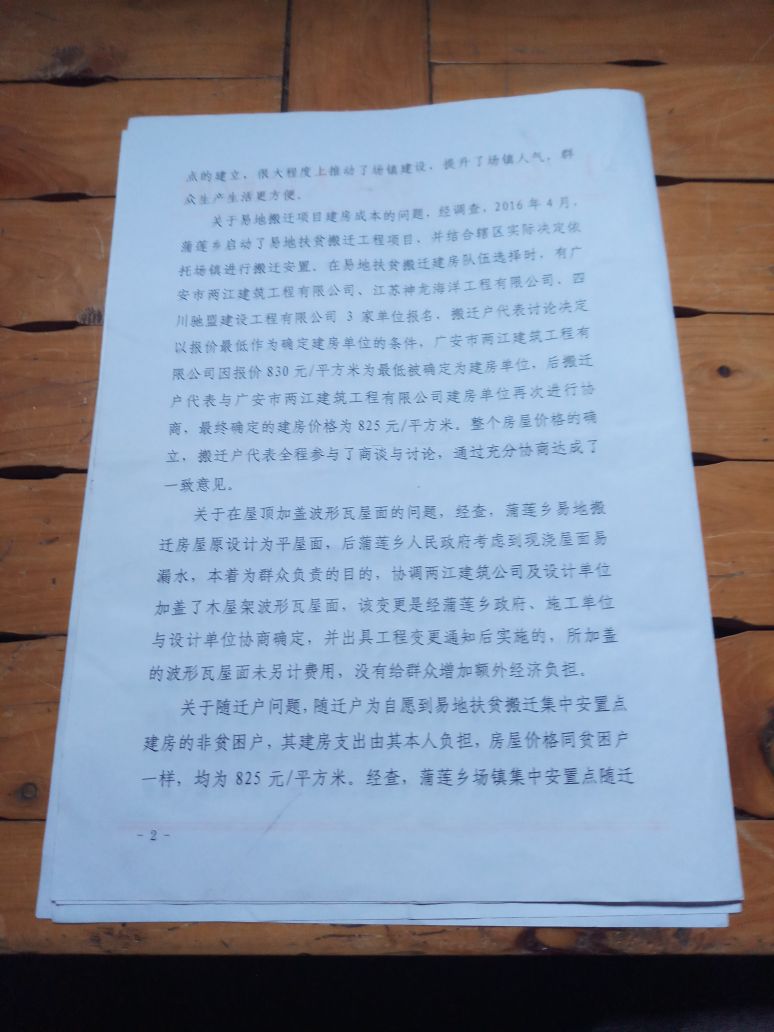 点的建立，很大程度上推动了场镇建设，提升了场镇人气，群
众生产生活更方便。
关于易地搬迁项目建房成本的问题，经调查，2016年4月，
蒲莲乡启动了易地扶贫搬迁工程项目，并结合辖区实际决定依
托场镇进行搬迁安置，在易地扶贫搬迁建房队伍选择时，有广
安市两江建筑工程有限公司、江苏神龙海洋工程有限公司、四
川驰盟建设工程有限公司 3 家单位报名，搬迁户代表讨论决定
以报价最低作为确定建房单位的条件，广安市两江建筑工程有
限公司因报价830元/平方米为最低被确定为建房单位，后搬迁
户代表与广安市两江建筑工程有限公司建房单位再次进行协
商，最终确定的建房价格为825元/平方米。整个房屋价格的确
立，搬迁户代表全程参与了商谈与讨论，通过充分协商达成了
一致意见。
关于在屋顶加盖波形瓦屋面的问题，经查，蒲莲乡易地搬
迁房屋原设计为平屋面，后蒲莲乡人民政府考虑到现浇屋面易
漏水，本着为群众负责的目的，协调两江建筑公司及设计单位
加盖了木屋架波形瓦屋面，该变更是经蒲莲乡政府、施工单位
与设计单位协商确定，并出具工程变更通知后实施的，所加盖
的波形瓦屋面未另计费用，没有给群众增加额外经济负担。
关于随迁户问题，随迁户为自愿到易地扶贫搬迁集中安置点
建房的非贫困户，其建房支出由其本人负担，房屋价格同贫困户
一样，均为825元/平方米。经查，蒲莲乡场镇集中安置点随迁
- 2 -